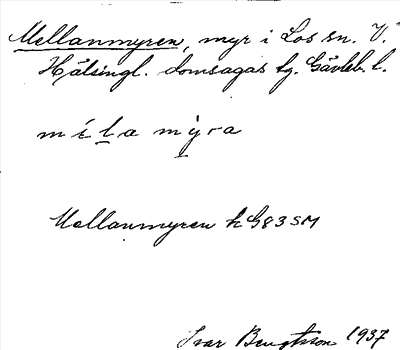 Mellanmyren, myr i Los sn. V.
Hälsingl. domsagas tg. Gävleb. l.
míla mýra
Mellanmyren k G83SM
Ivar Bengtsson 1937